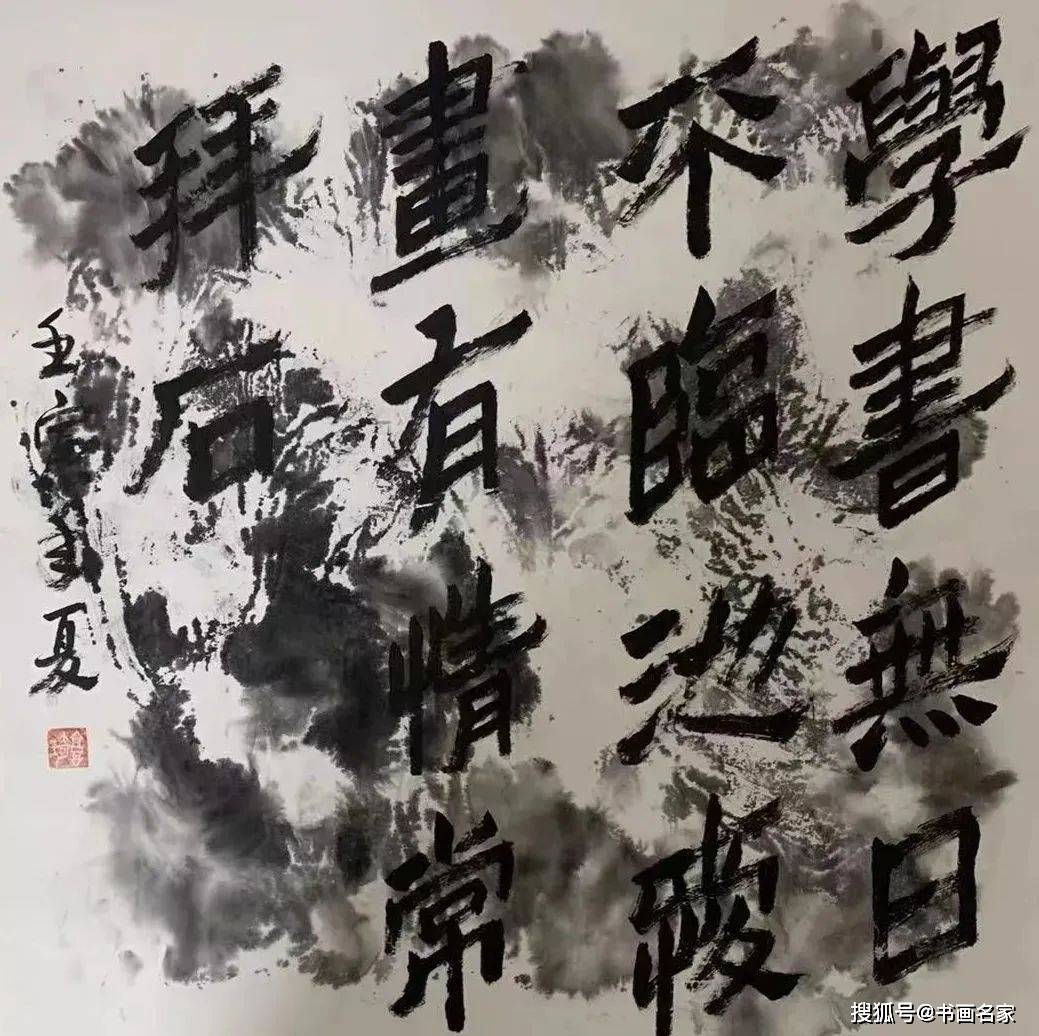 學書無日
不臨池
畫有情常
拜石
壬寅夏
搜狐号@书画名家